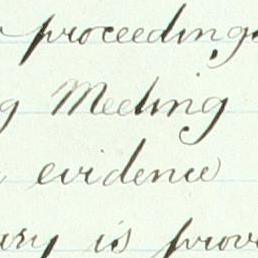 proceedings
g Meeting
evidence
ary is prov